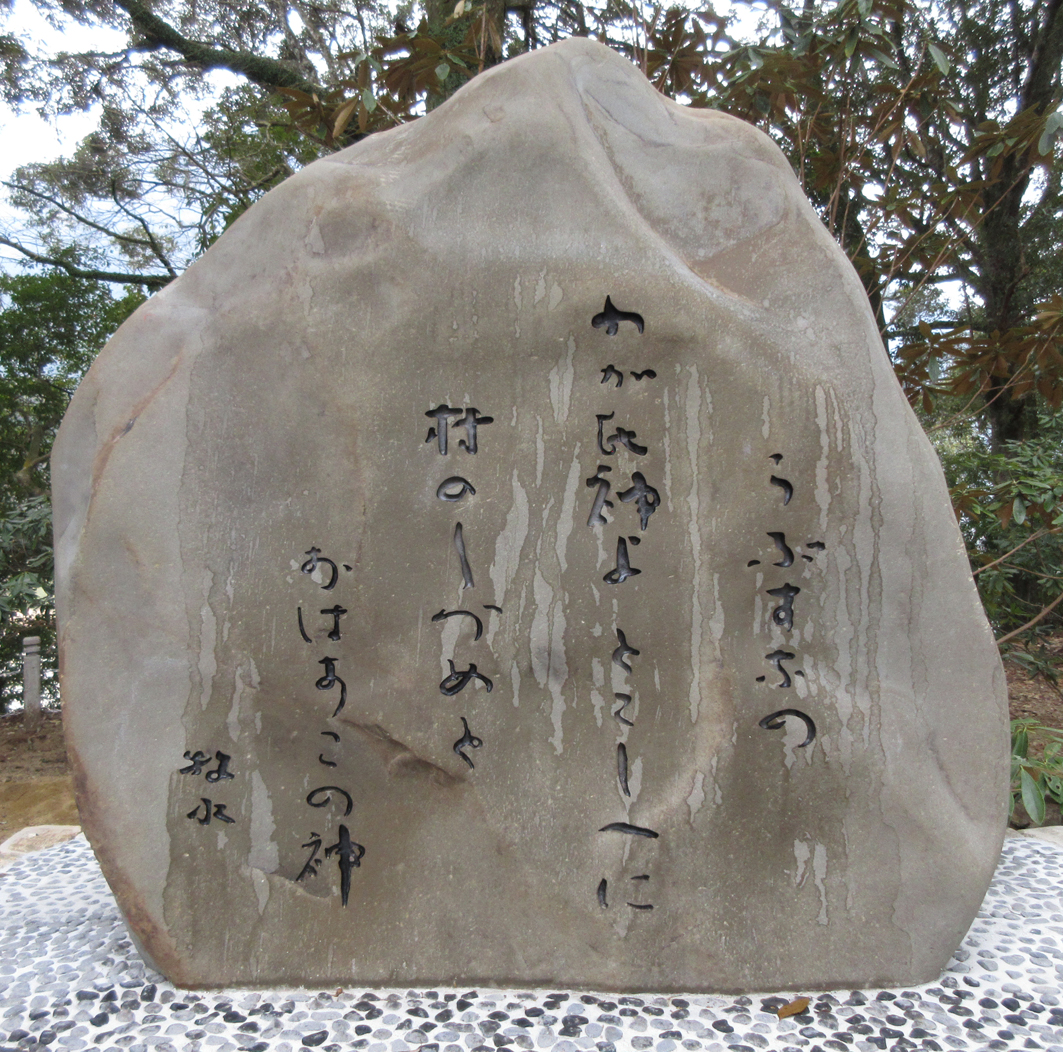 うぶすなの
わが氏神よとこしへに
村のしづめと
おはすこの神
牧水